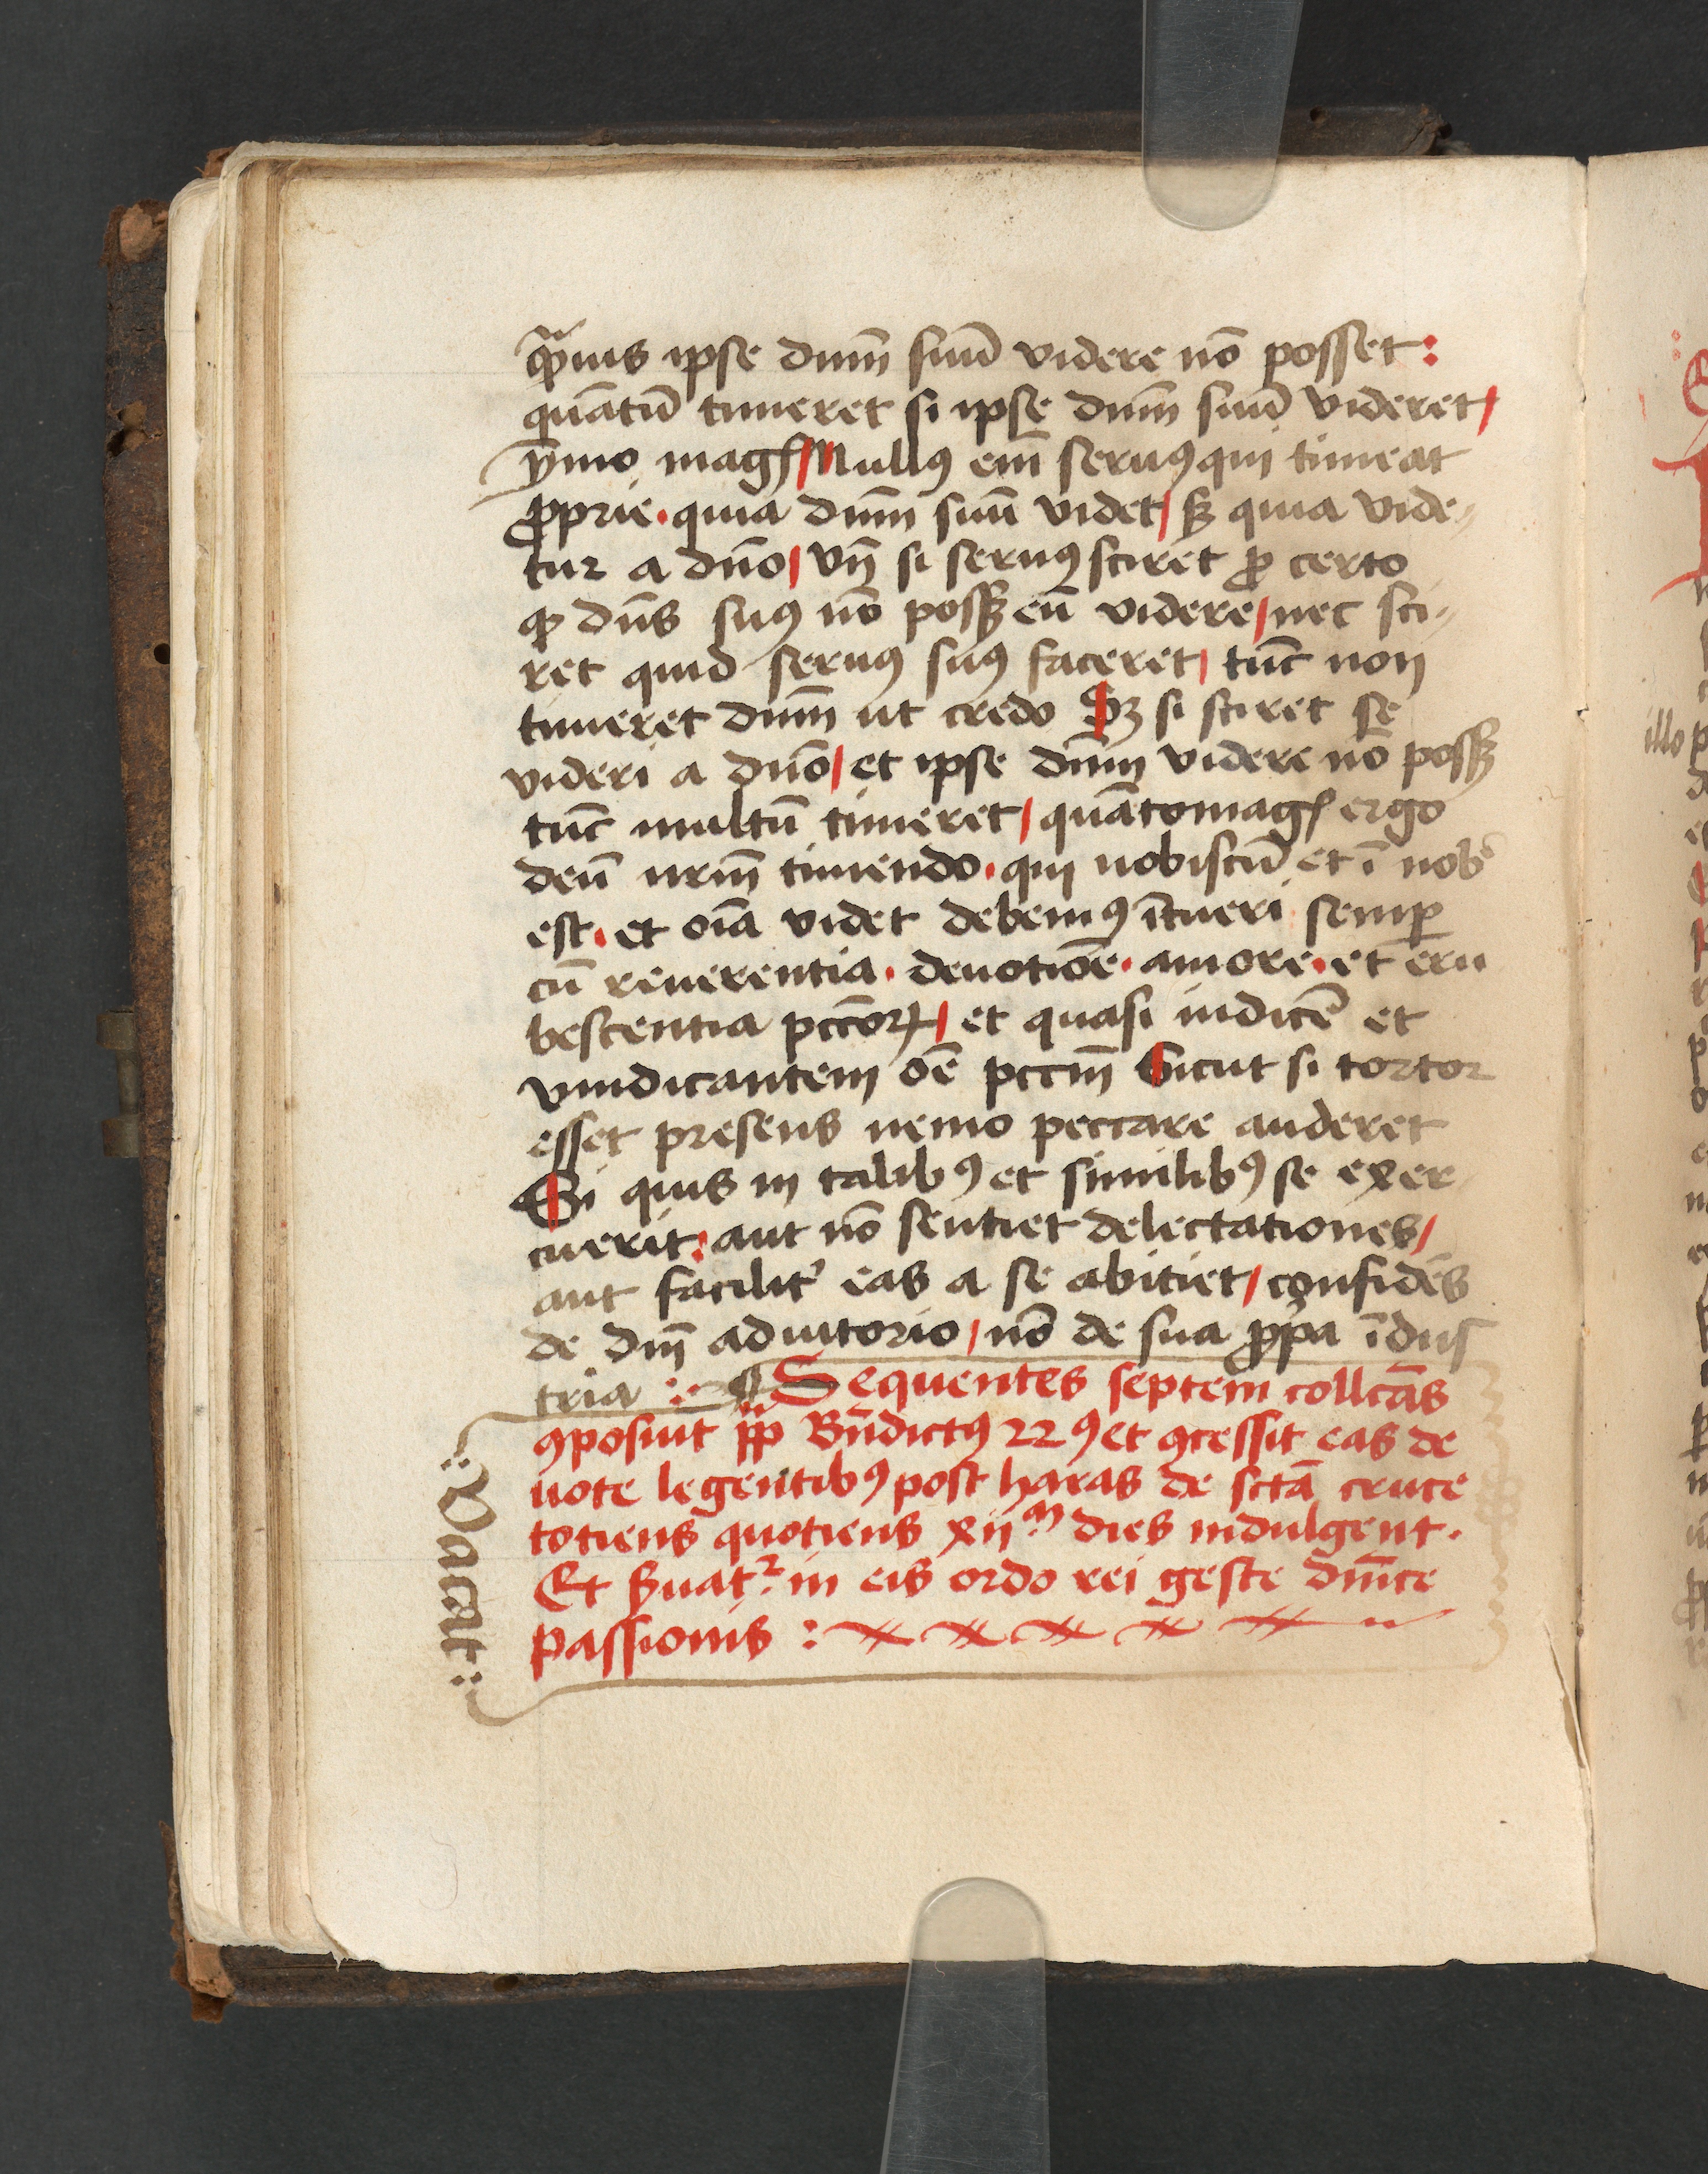 qͣmuis ipse dnm̄ suū videre nō posset :
quātū timeret si ipse dnm̄ suū videret /
ȳmo magꝭ / Nullꝯ em̄ seruꝯ qui timeat
ꝓprie · quia dnm̄ suū videt / sꝫ quia vide〃
tur a dn̄o / vn̄ si seruꝯ sciret ꝓ certo
ꝙ dn̄s suꝯ nō possꝫ eū videre / nec sci〃
ret quid seruꝯ suꝯ faceret / tūc non
timeret dnm̄ ut credo Sꝫ si sciret se
videri a dn̄o / et ipse dnm̄ videre nō possꝫ
tūc multū timeret / quātomagꝭ ergo
deū nrm̄ timendo · qui nobiscū et ī nobꝭ
est · et oīa videt debemꝯ ītueri semꝑ
cū reuerentia · deuotiōe · amore · et eru
bescentia pcc̄oꝝ / et quasi iudicē et
vindicantem oē̄ pccm̄ Sicut si tortor
esset presens nemo peccare auderet
Si quis in talibꝯ et similibꝯ se exer
cuerit : aut nō sentiet delectationes /
aut facilit᾽ eas a se abitiet / confidēs
de dīn adiutorio / nō de sua ꝓpa īdus
tria : ¶ Sequentes septem collcās
ꝯposuit pp̄ Bn̄dictꝯ 22ꝯ et ꝯcessit eas de
uote legentibꝯ post haras de sctā cruce
totiens quotiens xij m dies indulgent.
Et ẜuat᷑ in eis ordo rei geste dn̄ice
passionis :
: Vacat :
illo